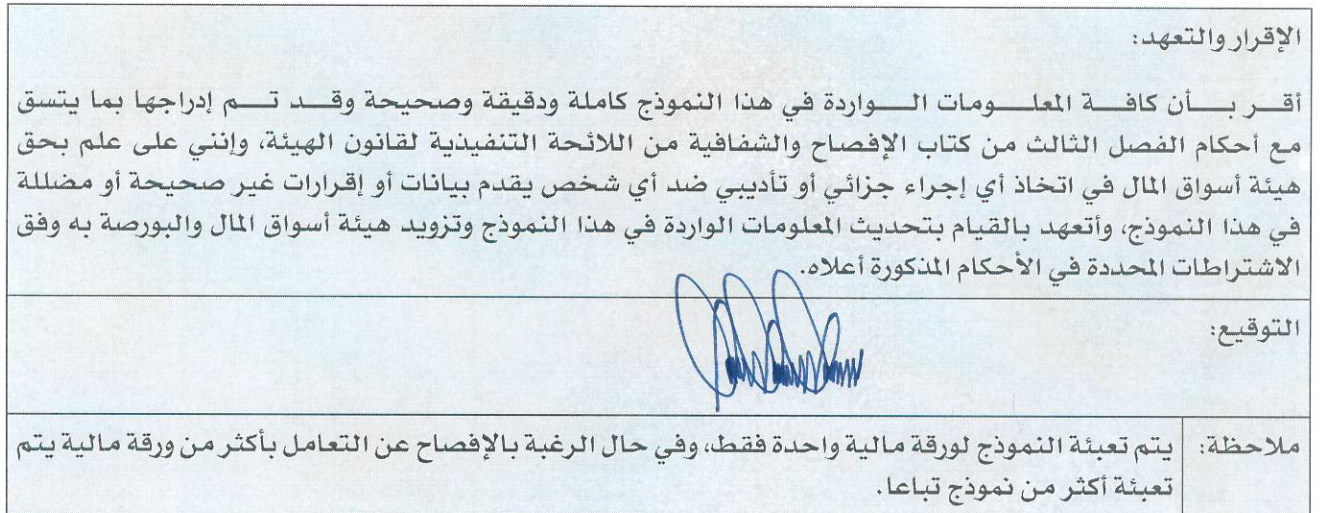 الإقرار والتعهد:
أقــر بــــأن كافــــة المعلــــومات الـــــواردة في هذا النموذج كاملة ودقيقة وصحيحة وقــــد تــــم إدراجها بما يتسق
مع أحكام الفصل الثالث من كتاب الإفصاح والشفافية من اللائحة التنفيذية لقانون الهيئة، وإنني على علم بحق
هيئة أسواق المال في اتخاذ أي إجراء جزائي أو تأديبي ضد أي شخص يقدم بيانات أو إقرارات غير صحيحة أو مضللة
في هذا النموذج، وأتعهد بالقيام بتحديث المعلومات الواردة في هذا النموذج وتزويد هيئة أسواق المال والبورصة به وفق
الاشتراطات المحددة في الأحكام المذكورة أعلاه.
التوقيع:
ملاحظة: يتم تعبئة النموذج لورقة مالية واحدة فقط، وفي حال الرغبة بالإفصاح عن التعامل بأكثر من ورقة مالية يتم
تعبئة أكثر من نموذج تباعا.